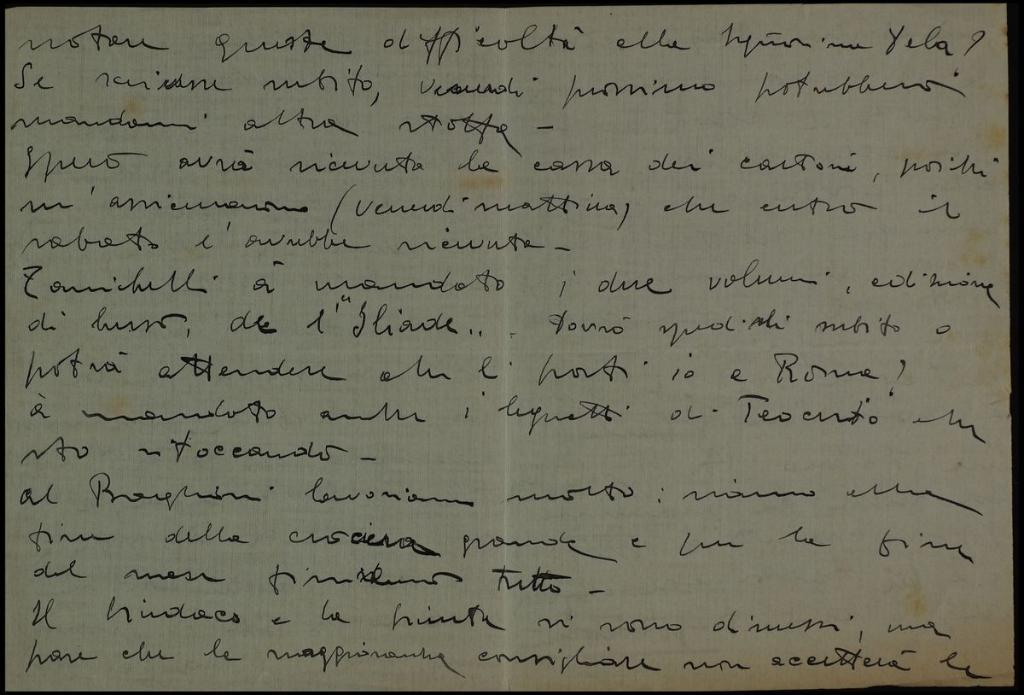 notare queste difficoltà alla Signorina Vela?
Se scrivesse subito, venerdì prossimo potrebbero
mandarmi altra stoffa –
Spero avrà ricevuta la cassa dei cartoni, poichè
m'assicurarono (venerdì mattina) che entro il
sabato l'avrebbe ricevuta –
Zanichelli à mandato i due volumi, edizione
di lusso, de l'"Iliade.. . Dovrò spedirli subito o
potrà attendere che li porti io a Roma?
à mandato anche i legnetti di Teocrito che
sto ritoccando –
al Baglioni lavoriamo molto: siamo alla
fine della crociera grande e per la fine
del mese finiremo tutto –
Il Sindaco e la Giunta si sono dimessi, ma
pare che la maggioranza consigliare non accetterà le